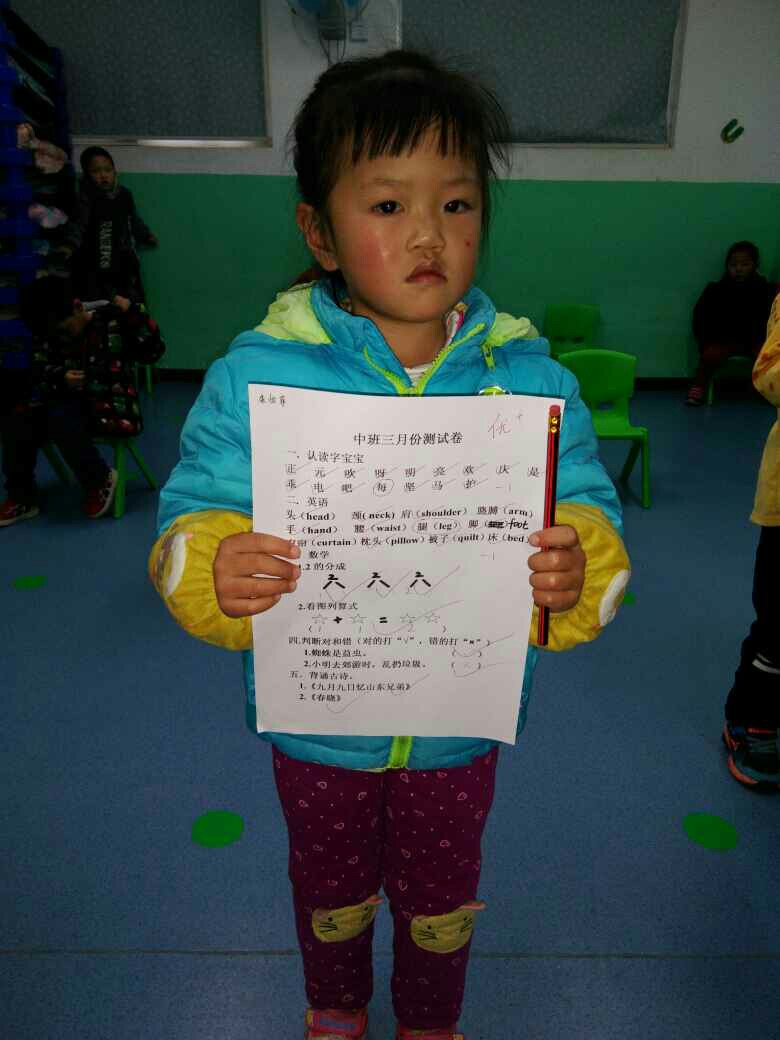 优+
中班三月份测试卷
一．认读字宝宝
正 元 欧 呀 明 亮 欢 庆 是
乖 电 吧 每 坚 马 护 -1
二．英语
头（head） 颈（neck）肩（shoulder） 胳膊（arm）
手（hand） 腰（waist）腿（leg） 脚（foot
窗帘（curtain）枕头（pillow）被子（quilt）床（bed）
数学 -1
1.2 的分成
2 2 2
2.看图列算式
☆ + ☆ = ☆ ☆
（1 1 2）
四.判断对和错（对的打“√”，错的打“×”）
1.蜘蛛是益虫。（ ）
2.小明去郊游时，乱扔垃圾。（×）
五．背诵古诗。
1.《九月九日忆山东兄弟》
2.《春晓》
RANGERS